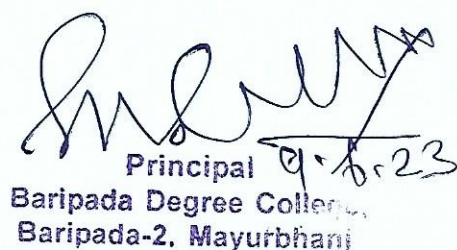 Principal 9.6.23
Baripada Degree College,
Baripada-2, Mayurbhanj